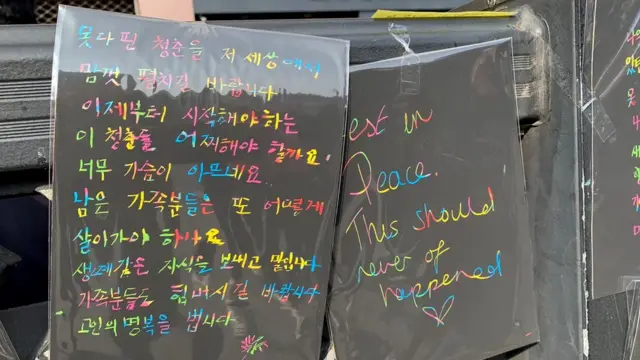 못다핀 청춘을 저 세상에서
맘껏 펼치길 바랍니다
이제부터 시작해야하는
이 청춘들 어찌해야 할까요.
너무 가슴이 아프네요..
남은 가족분들은 또 어떻게
살아가야 하나요
생떼같은 자식을 보내고 말입니다
가족분들도 힘내시길 바랍니다
고인의 명복을 빕니다
est in
Peace.
This should
never of
happened